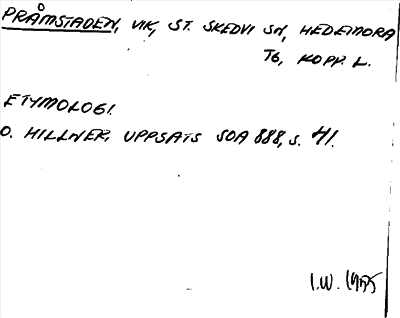 PRÅMSTADEN, VIK, ST. SKEDVI SN, HEDEMORA
TG, KOPP. L.
ETYMOLOGI.
O. HILLNER, UPPSATS SOA 888, S. 41.
I.W.